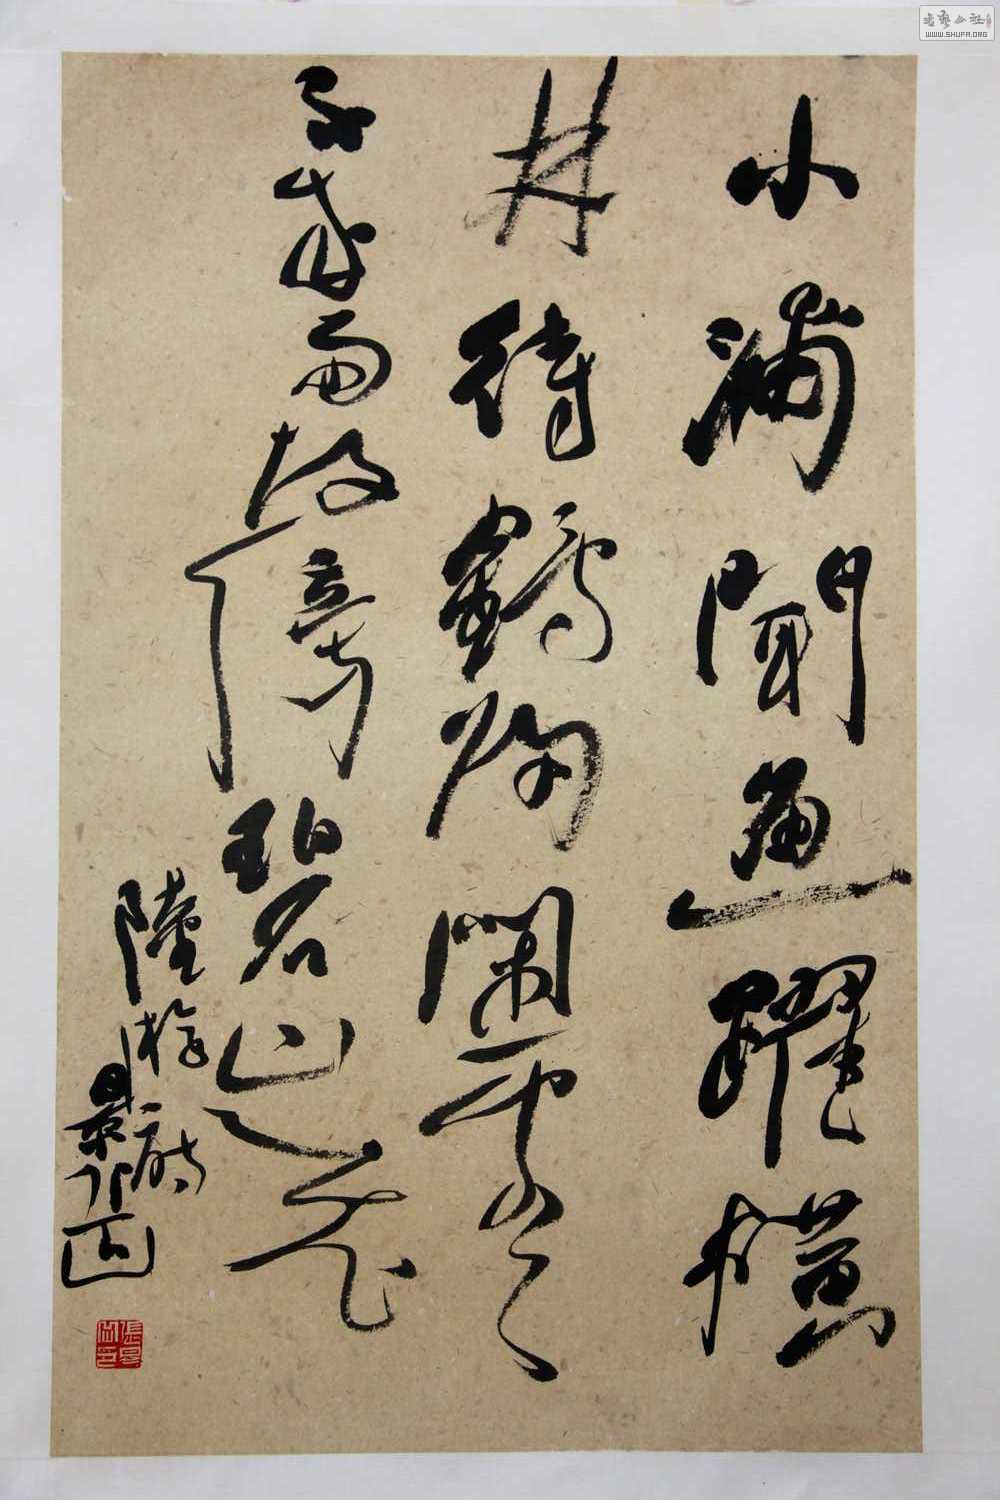 小浦聞魚躍橫
林待鶴歸閑雲
不成雨故傍碧山飛
陸游詩
景岳
書藝公社
WWW.SHUFA.ORG